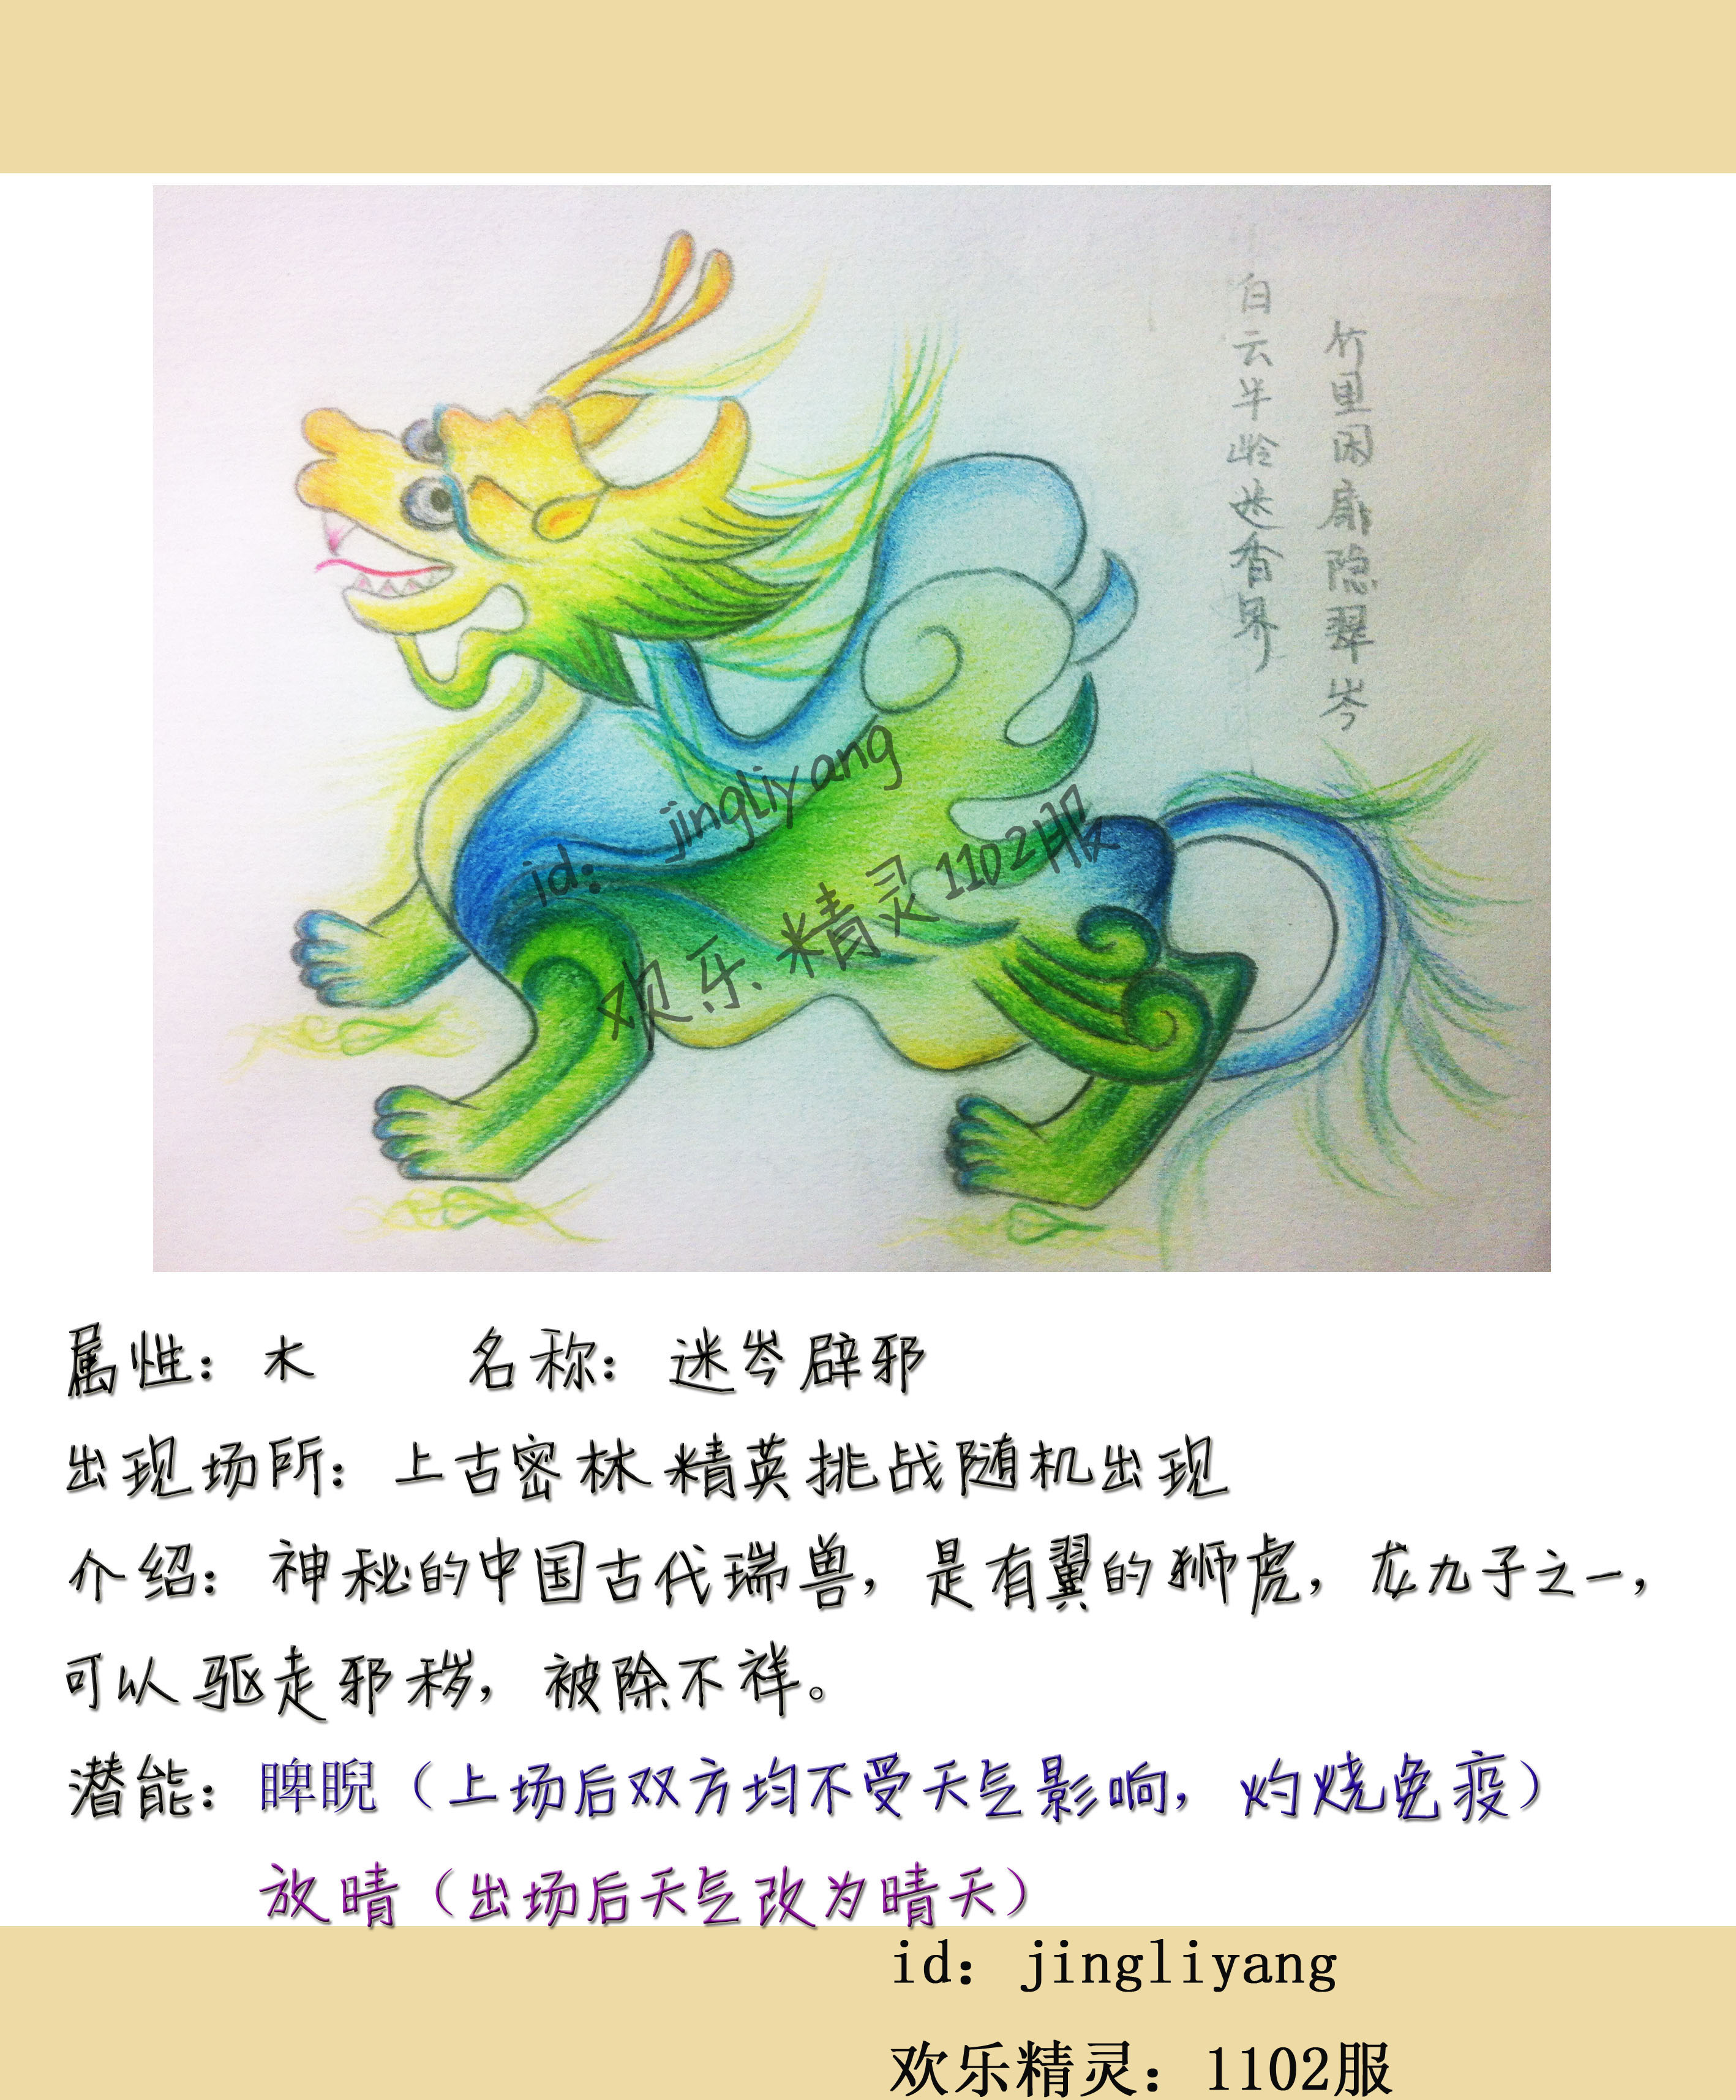 竹里闲扉隐翠岑
白云半岭迷香界
id: jingliyang
欢乐精灵1102服
属性：木 名称：迷岑辟邪
出现场所：上古密林精英挑战随机出现
介绍：神秘的中国古代瑞兽，是有翼的狮虎，龙九子之一，
可以驱走邪秽，被除不祥。
潜能：睥睨（上场后双方均不受天气影响，灼烧免疫）
放晴（出场后天气改为晴天）
id：jingliyang
欢乐精灵：1102服